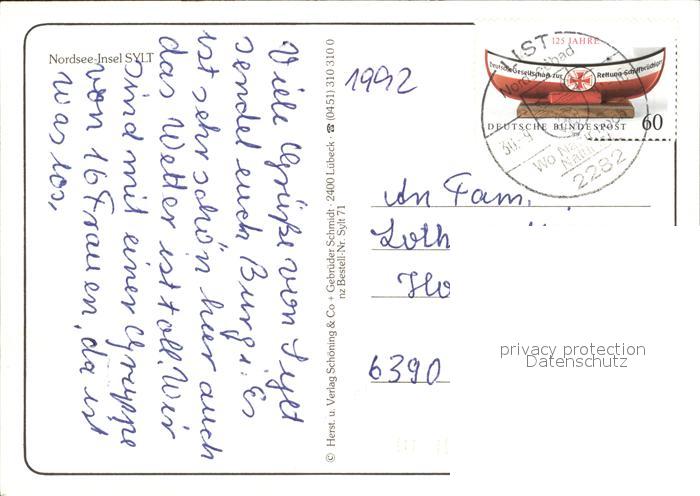 Nordsee-Insel SYLT
Viele Grüße von Sylt
sendet euch Burgi. Es
ist sehr schön hier auch
das Wetter ist toll. Wir
sind mit einer Gruppe
von 16 Frauen, da ist
was los,
© Herst. u. Verlag Schöning & Co + Gebrüder Schmidt · 2400 Lübeck · ☎ (0451) 310 310 0
nz Bestell-Nr. Sylt 71
1992
125 JAHRE
Deutsche Gesellschaft zur Rettung Schiffbrüchiger
DEUTSCHE BUNDESPOST
60
LIST
2282
An Fam.
Loth
Ho
6390
privacy protection
Datenschutz